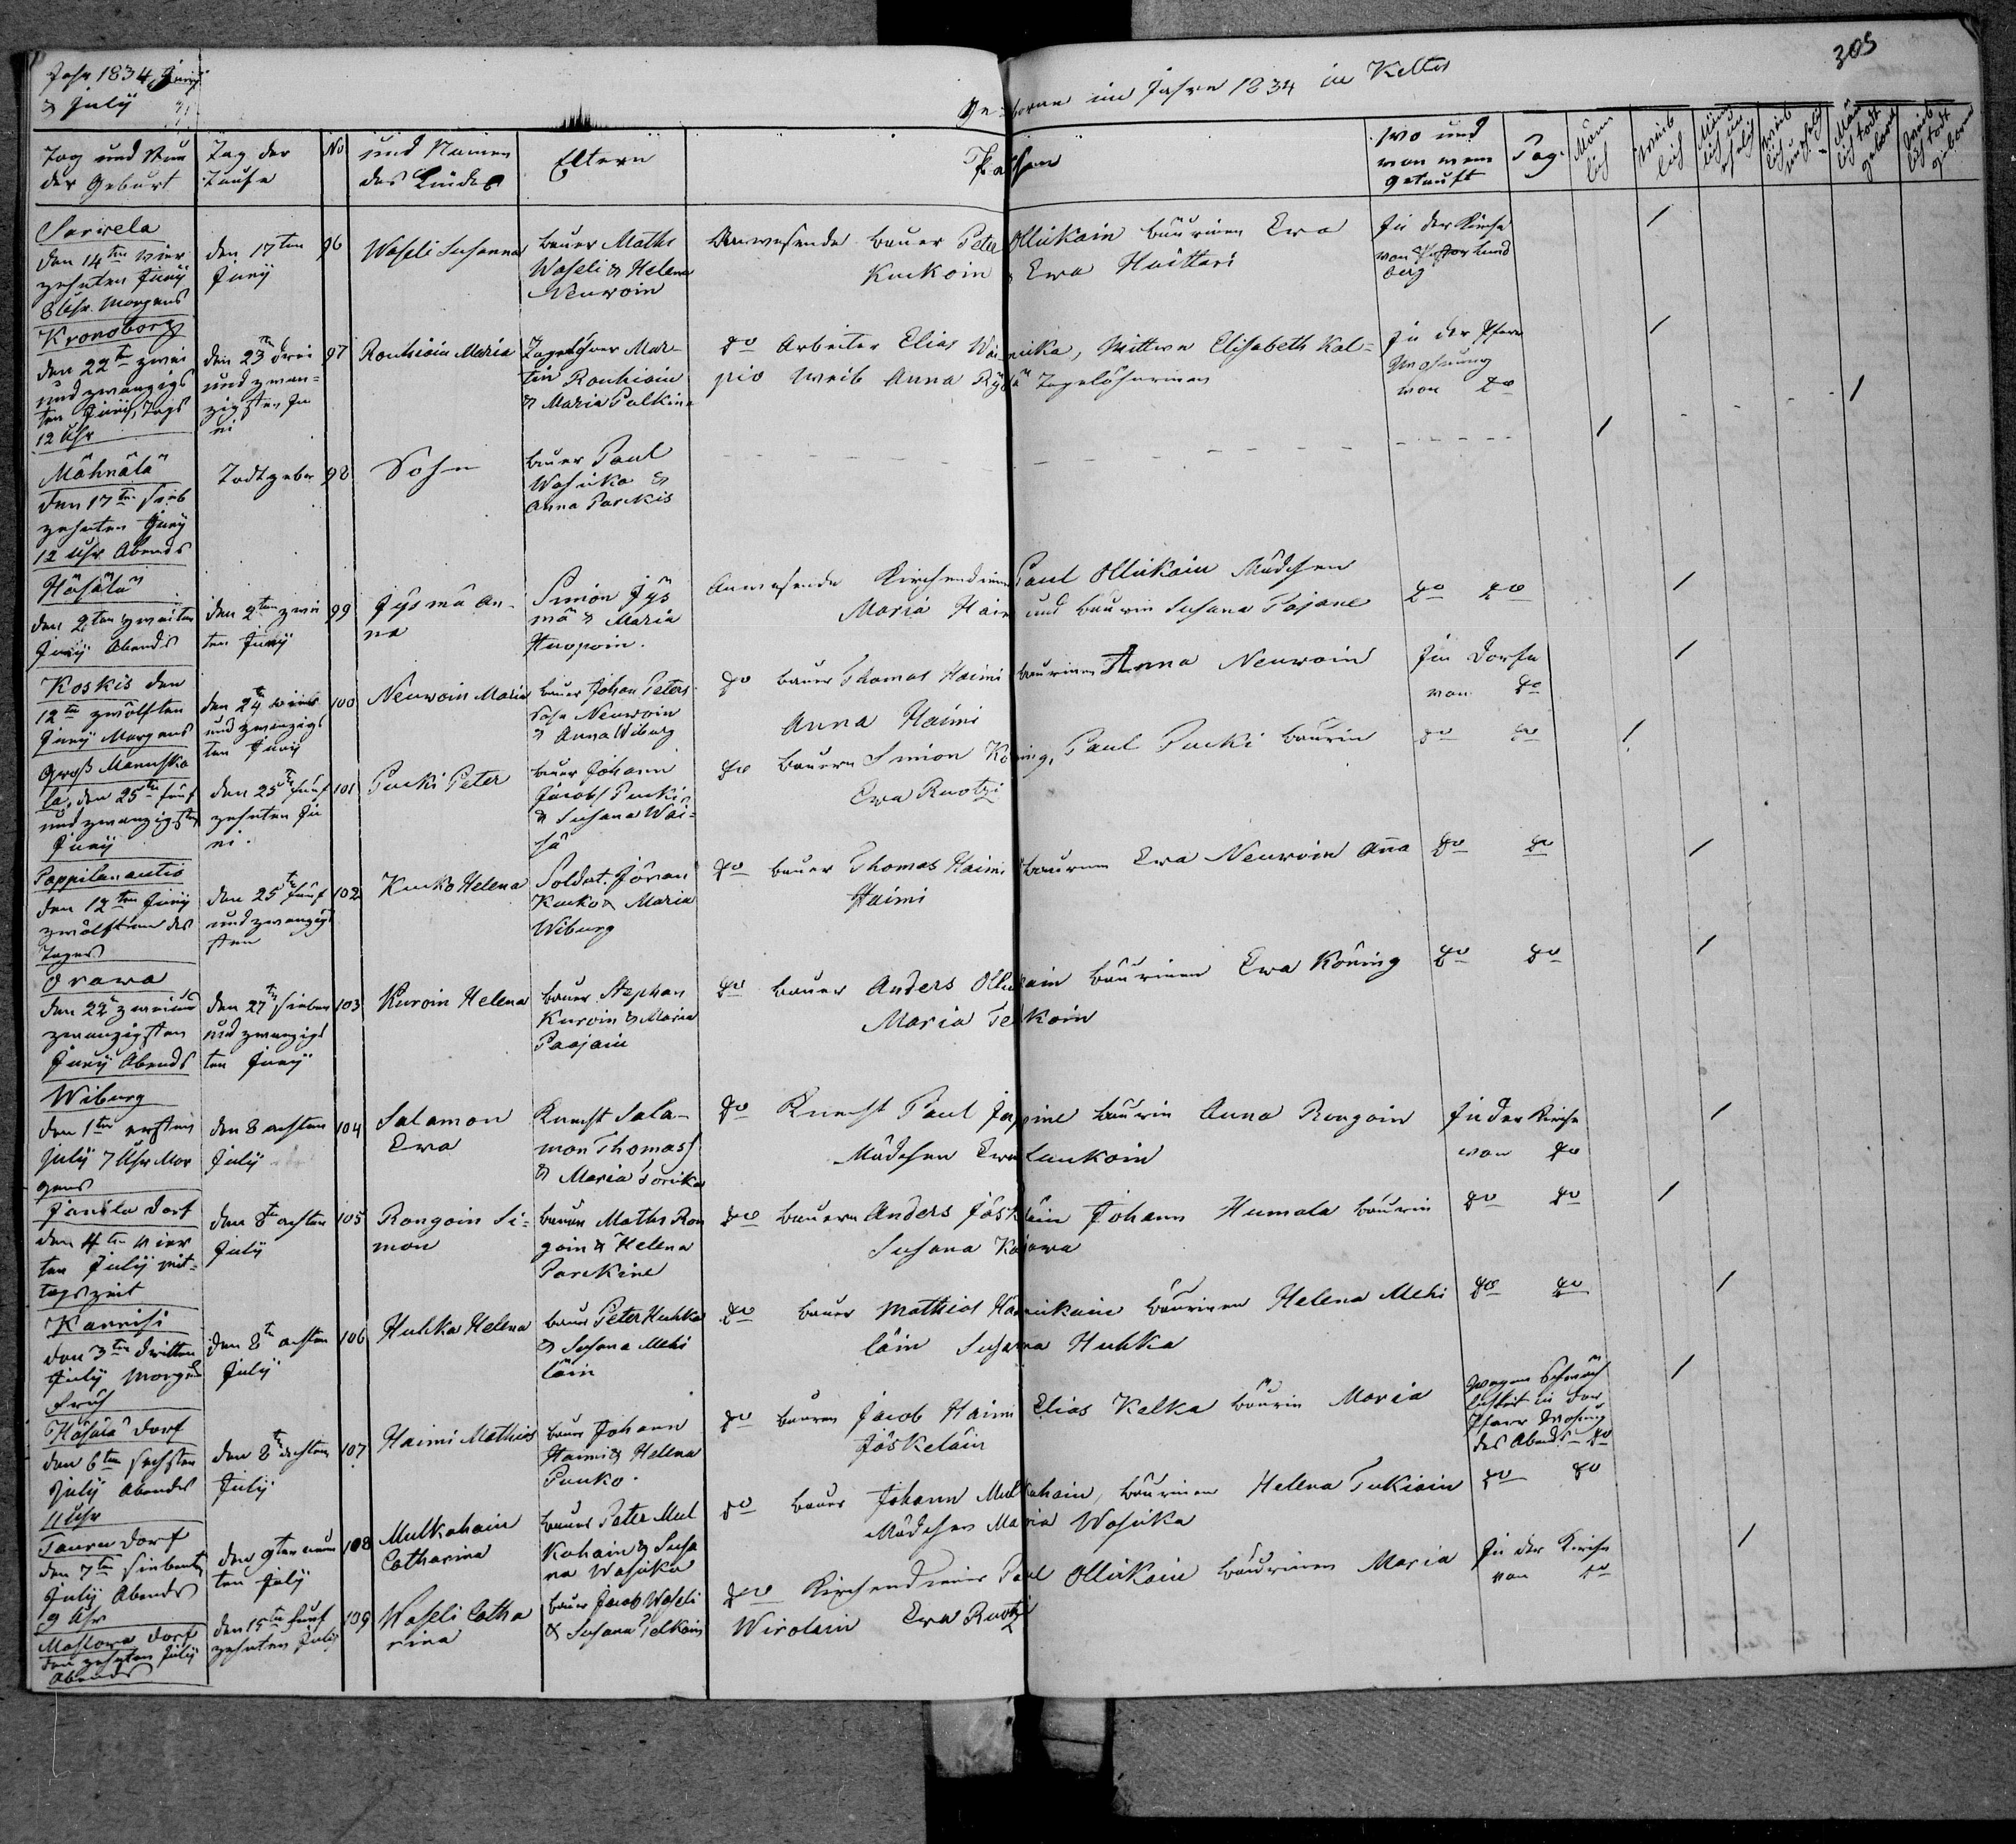 Jahr 1834, Juny
& July
Geborne im Jahre 1834 in Keltto
305
Tag und Stun
der Geburt
Tag der
Taufe
No
und Namen
des Kindes
Eltern
Pathen
wo und
von wem
getauft
Pag.
Männ
lich
Weib
lich
Sarwela
den 14ten vier
zehnten Juny
8 Uhr Morgens
den 17ten
Juny
96
Waseli Susanna
Bauer Maths
Waseli & Helena
Neuwoin
Anwesende Bauer Peter Ollikain Bäurinen Ewa
Kuckoin & Ewa Haittari
In der Kirche
von Pastor Lund
berg
Kronoborg
den 22t zwei
und zwanzigs
ten Juny, Tags
12 Uhr
den 23ten drei
und zwan=
zigsten Ju
ni
97
Rouhiain Maria
Tagelöhner Mar-
tin Rouhiain
& Maria Palkin
do Arbeiter Elias Wai nika, Wittwe Elisabeth Kal=
pio Weib Anna Tagelöhnerinen
In der Pfarr
Wohnung
von do
Mähnälä
den 17ten sieb
zehnten Juny
12 Uhr Abends
Todtgebor
98
Sohn
Bauer Paul
Wasika &
Anna Parkis
Häsälä
den 2ten zweiten
Juny Abends
den 2ten zwei
ten Juny
99
Jysmä An-
na
Simon Jys
mä & Maria
Huopoin.
Anwesende Kirchendiener Paul Ollikain Mädchen
Maria Haim und Bäurin Susana Pajane
do do
Koskis den
12ten zwölften
Juny Morgens
den 24ten vier
und zwanzigs
ten Juny
100
Neuwoin Maria
Bauer Johan Peters
Sohn Neuwoin
& Anna Wiburg
do Bauer Thomas Haimi Bäurinen Anna Neuwoin
Anna Haimi
Im Dorfe
von do
Groß Manuska
la, den 25ten fünf
und zwanzigsten
Juny
den 25ten fünf
zehnten Ju
ni.
101
Pucki Peter
Bauer Johann
Jacobs Pucki
& Susana Wai=
sä
do Bauern Simon Köning, Paul Pucki Bäurin
Ewa Ruotzi
do do
Pappilanautio
den 12ten Juny
zwölften des
Tages
den 25ten fünf
und zwanzigs
ten
102
Kucko Helena
Soldat Jöran
Kucko & Maria
Wiburg
do Bauer Thomas Haimi Bäurinen Ewa Neuwoin Anna
Haimi
do do
Orawa
den 22ten zweiund
zwanzigsten
Juny Abends
den 27ten sieben
und zwanzigs
ten Juny
103
Kuroin Helena
Bauer Stephan
Kuroin & Maria
Paajain
do Bauer Anders Ollikain Bäurinen Ewa Köning
Maria Telkoin
do do
Wiburg
den 1ten ersten
July 7 Uhr Mor
gens
den 8 achten
July
104
Salamon
Ewa
Knecht Sala-
mon Thomas
& Maria Torika
do Knecht Paul Jappine Bäurin Anna Rongoin
Mädchen Ewa Luukoin
In der Kirche
von do
Janila Dorf
den 4ten vier
ten July mit=
tagszeit
den 8ten achten
July
105
Rongoin Si=
mon
Bauer Maths Ron
goin & Helena
Parckine
do Bauern Anders Jäskläin Johann Humala Bäurin
Susana Kajawa
do do
Kannisi
den 3ten dritten
July Morgens
früh
den 8ten achten
July
106
Huhka Helena
Bauer Peter Huhka
& Susana Mehi
läin
do Bauer Mathias Hännikain Bäurinen Helena Mehi
läin Susanna Huhka
do do
Häsälä Dorf
den 6ten sechsten
July Abends
11 Uhr
den 8ten achten
July
107
Haimi Mathias
Bauer Johann
Haimi & Helena
Punko.
do Bauern Jacob Haimi Elias Kalka Bäurin Maria
Jäskeläin
wegen Schwäch
lichkeit in der
Pfarr Wohnung
des Abends do
Tauru Dorf
den 7ten siebenten
July Abends
9 Uhr
den 9ten neun
ten July
108
Mulkahain
Catharina
Bauer Peter Mul
kahain & Susa
na Wasika
do Bauer Johann Mulkahain, Bäurinen Helena Tukiain
Mädchen Maria Wasika
do do
Maslowa Dorf
den zehnten July
Abends
den 15ten fünf
zehnten July
109
Waseli Catha
rina
Bauer Jacob Waseli
& Susana Telkoin
do Kirchendiener Paul Ollikain Bäurinen Maria
Wirolain Ewa Ruotzi
In der Kirche
von do